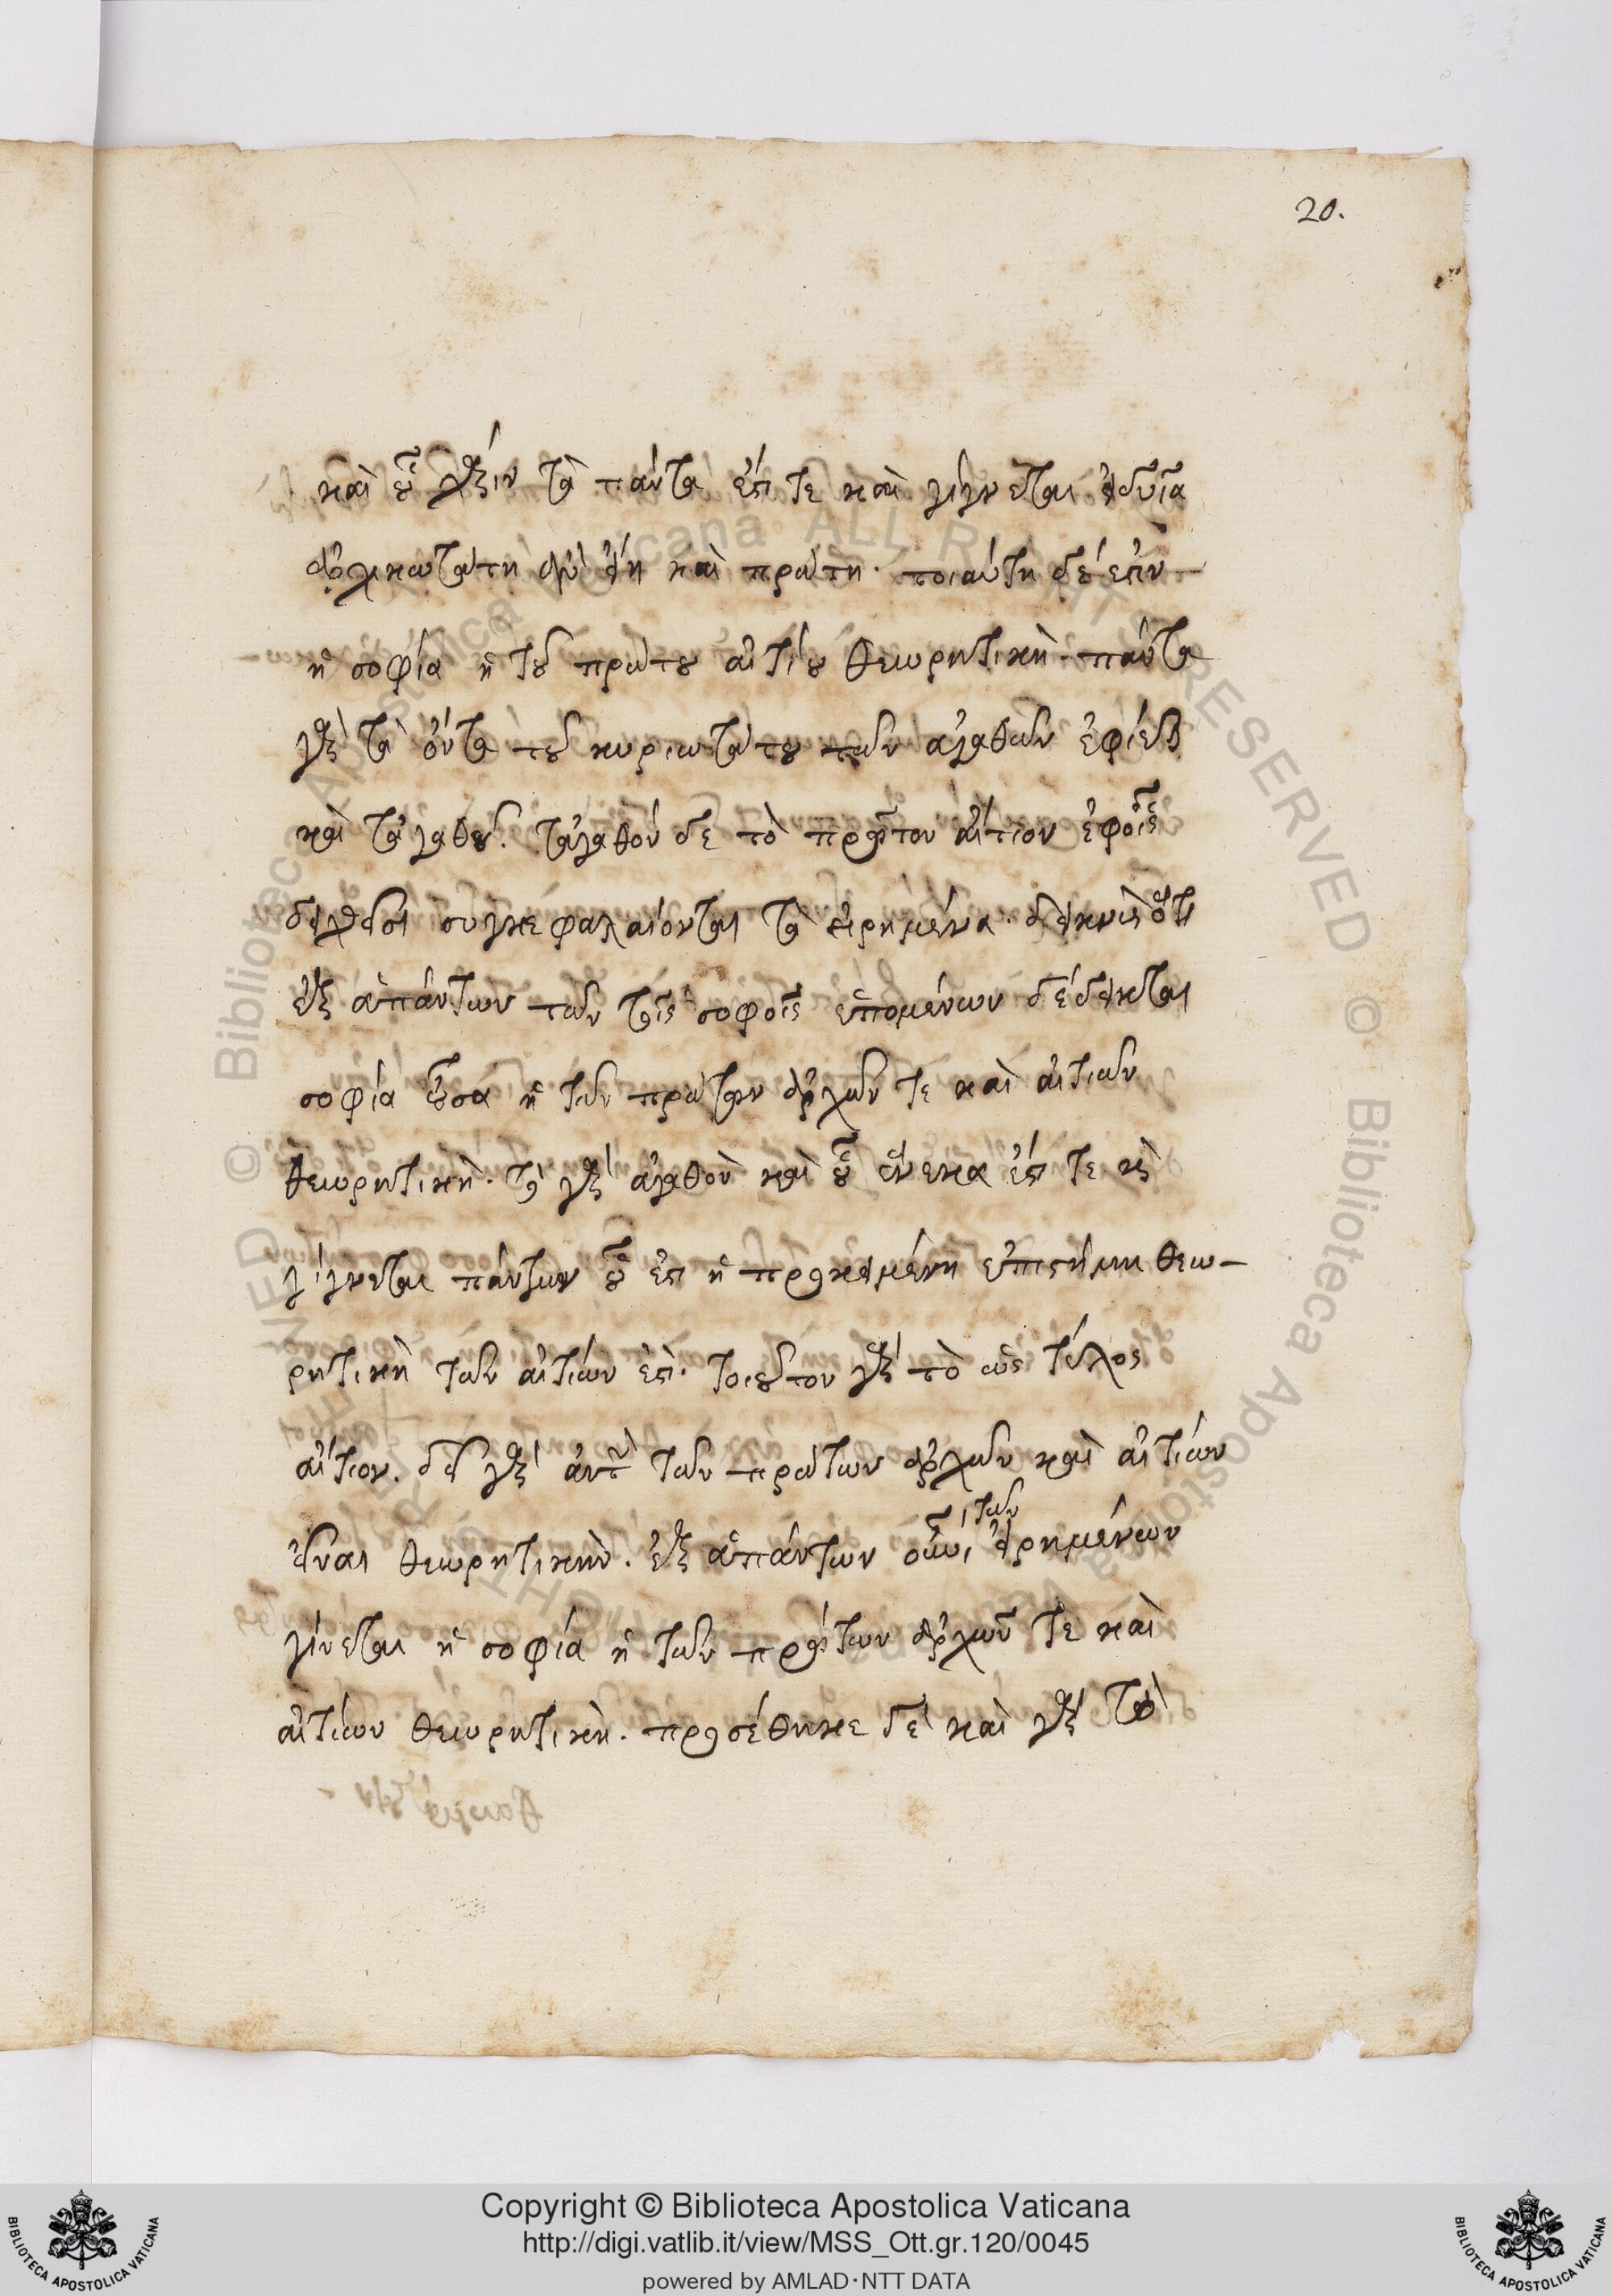 20.
καὶ οὗ χάριν τὰ πάντα ἐστί τε καὶ γίγνεται εἰδυῖα
ἀρχικωτάτη ἂν εἴη καὶ πρώτη. τοιαύτη δέ ἐστιν
ἡ σοφία ἡ τοῦ πρώτου αἰτίου θεωρητικὴ. πάντα
γὰρ τὰ ὄντα τοῦ κυριωτάτου τῶν ἀγαθῶν ἐφίεται
καὶ τἀγαθοῦ. τἀγαθὸν δὲ τὸ πρῶτον αἴτιον ἐφ οἷς
διελθὼν συγκεφαλαιοῦται τὰ εἰρημένα. δεικνὺς ὅτι
ἐξ ἁπάντων τῶν τοῖς σοφοῖς ἑπομένων δέδεικται
σοφία οὖσα ἡ τῶν πρώτων ἀρχῶν τε καὶ αἰτιῶν
θεωρητικὴ. τὸ γὰρ ἀγαθὸν καὶ οὗ ἕνεκα ἐστί τε καὶ
γίγνεται πάντων οὗ ἐστιν ἡ προκειμένη ἐπιστήμη θεω-
ρητικὴ τῶν αἰτίων ἐστὶ. τοιοῦτον γὰρ τὸ ὡς τέλος
αἴτιον. δεῖ γὰρ αὐτὴν τῶν πρώτων ἀρχῶν καὶ αἰτίων
εἶναι θεωρητικὴν. ἐξ ἁπάντων οὖν τῶν εἰρημένων
γίνεται ἡ σοφία ἡ τῶν πρώτων ἀρχῶν τε καὶ
αἰτίων θεωρητικὴ. προσέθηκε δὲ καὶ γὰρ τὸ
Copyright © Biblioteca Apostolica Vaticana
http://digi.vatlib.it/view/MSS_Ott.gr.120/0045
powered by AMLAD·NTT DATA
BIBLIOTECA APOSTOLICA VATICANA
BIBLIOTECA APOSTOLICA VATICANA